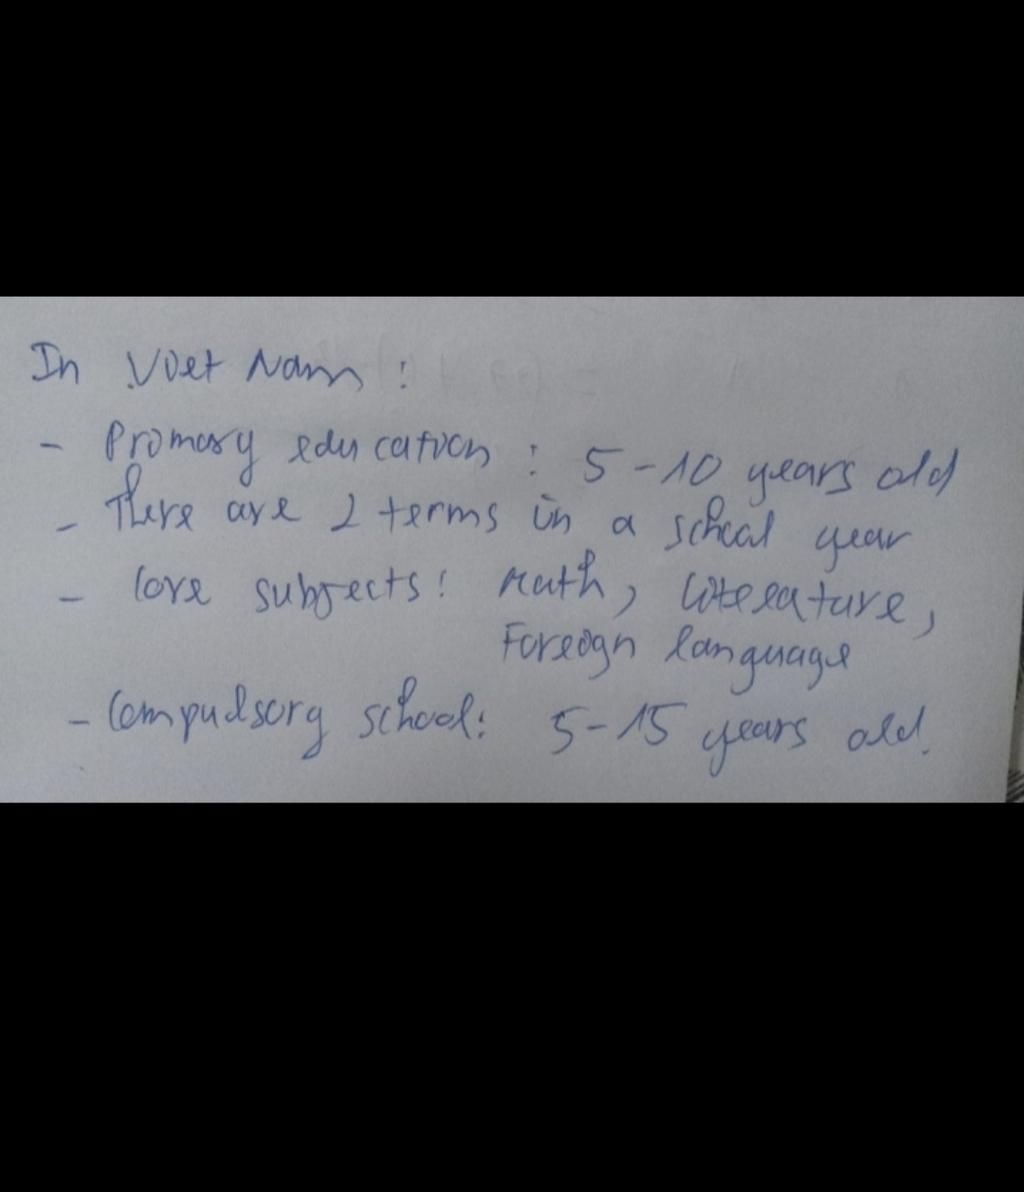 In Viet Nam :
- Primary education : 5-10 years old
- There are 2 terms in a school year
- Core subjects: Math, Literature,
Foreign language
- Compulsory school: 5-15 years old.